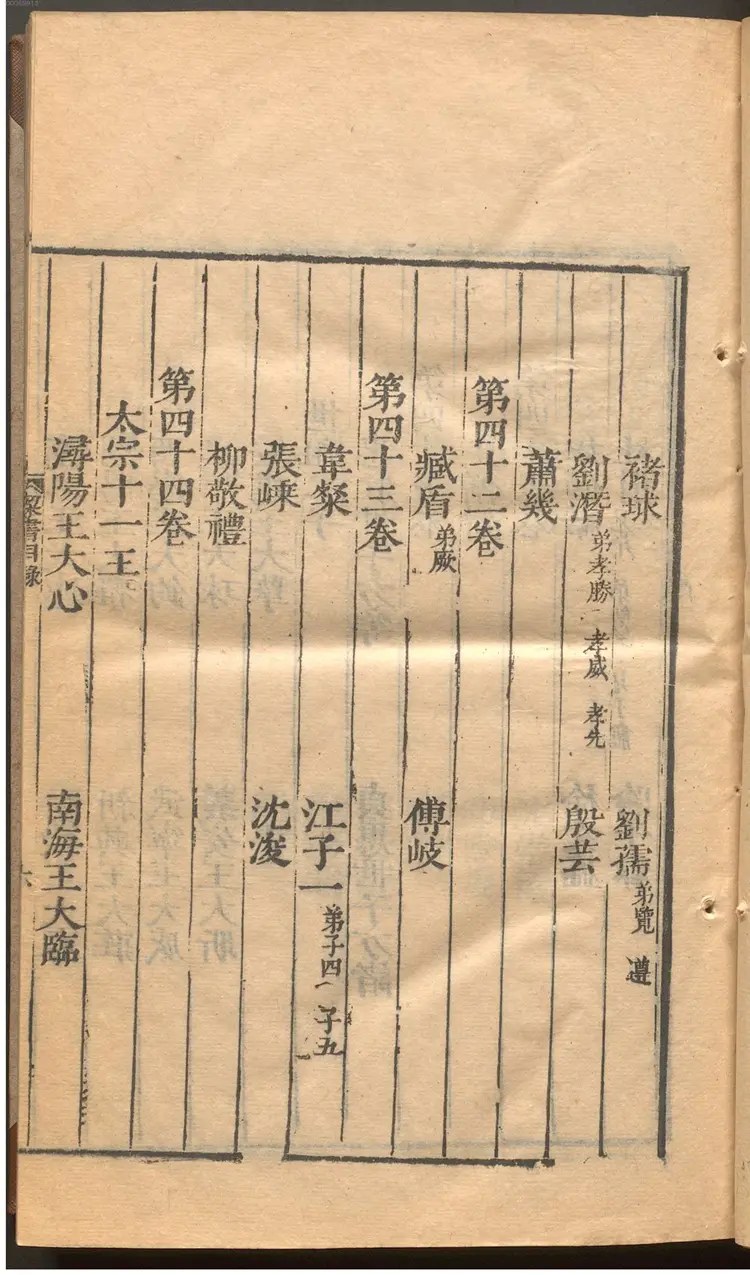 褚球 劉孺 弟覽 遵
劉潛 弟孝勝 孝威 孝先 殷芸
蕭幾
第四十二卷
臧盾 弟厥 傅岐
第四十三卷
韋粲 江子一 弟子四 子五
張嵊 沈浚
柳敬禮
第四十四卷
太宗十一王
潯陽王大心 南海王大臨
梁書目錄 六